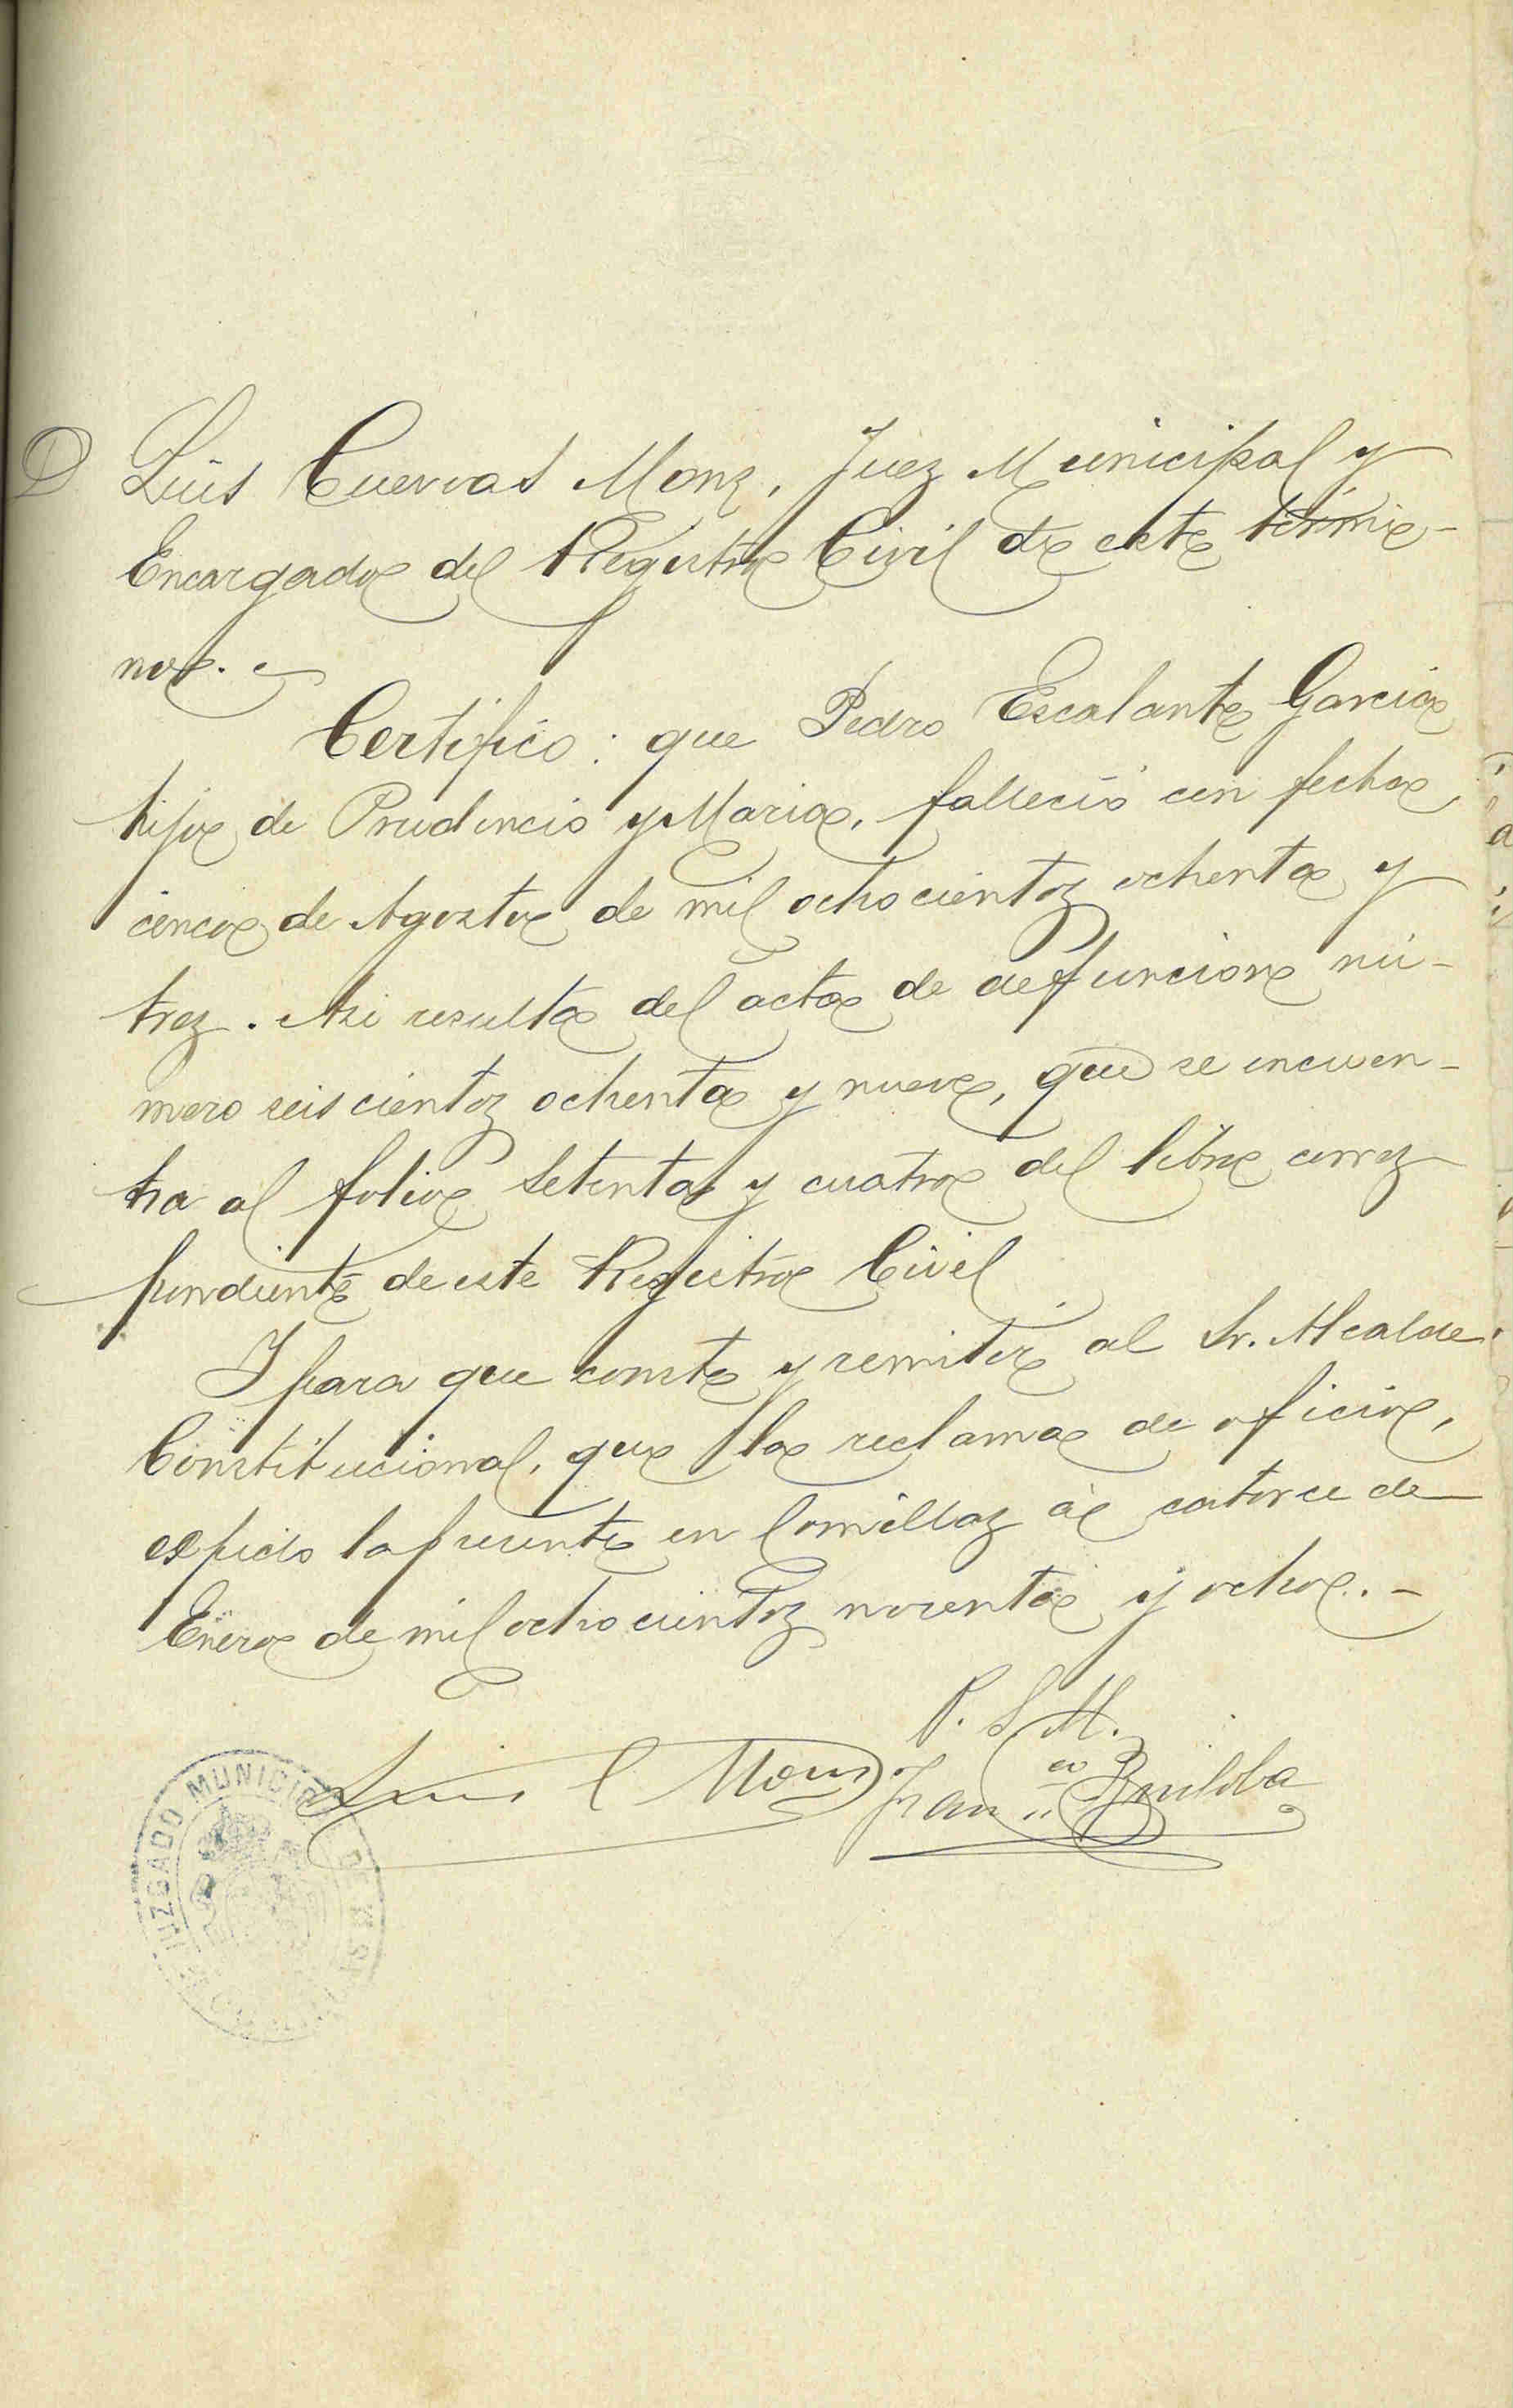 D Luis Cuervas Monz, Juez Municipal y
Encargado del Registro Civil de este térmi-
no.
Certifico: que Pedro Escalante Garcia
hijo de Prudencio y Maria, falleció con fecha
cinco de Agosto de mil ochocientoz ochenta y
trez. Asi resulta del acta de defuncion nú-
mero seiscientoz ochenta y nueve, que se encuen-
tra al folio setenta y cuatro del libro correz
pondiente de este Registro Civil
I para que conste y remitir al Sr. Alcalde
Constitucional, que la reclama de oficio,
expido la presente en Comillaz á catorce de
Enero de mil ochocientoz noventa y ocho.-
P. S. M.
Luis C Monz Franco Builoba
JUZGADO MUNICIPAL DE